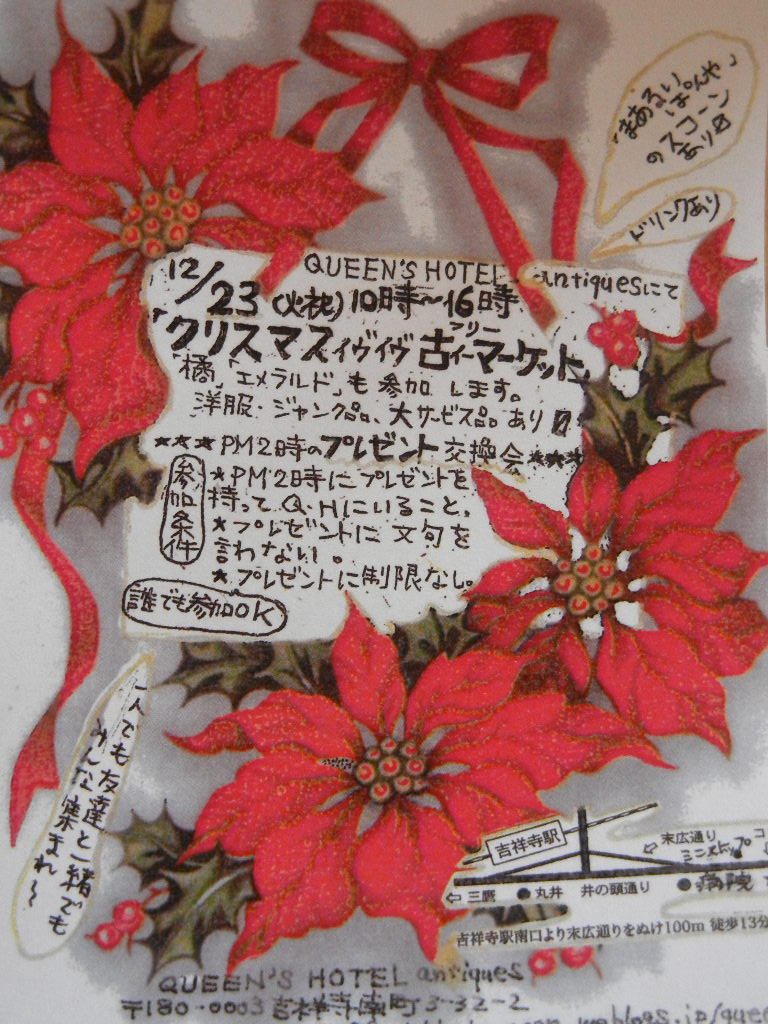 「まあるい
ぱんや」
のスコーン
あり〼
ドリンクあり
QUEEN'S HOTEL antiquesにて
12/23(火祝)10時〜16時
「クリスマスイヴイヴ古イーマーケット」
フリー
「橘」「エメラルド」も参加します。
洋服・ジャンク品、大サービス品あり〼
★★★PM2時のプレゼント交換会★★★
参加条件
★PM2時にプレゼントを
持ってQ.Hにいること。
★プレゼントに文句を
言わない。
★プレゼントに制限なし。
誰でも参加OK
一人でも友達と一緒でも
みんな集まれ〜
吉祥寺駅
末広通り
ミニストップ
コ
三鷹
丸井
井の頭通り
病院
吉祥寺駅南口より末広通りをぬけ100m 徒歩13分
QUEEN'S HOTEL antiques
〒180-0003 吉祥寺南町3-32-2